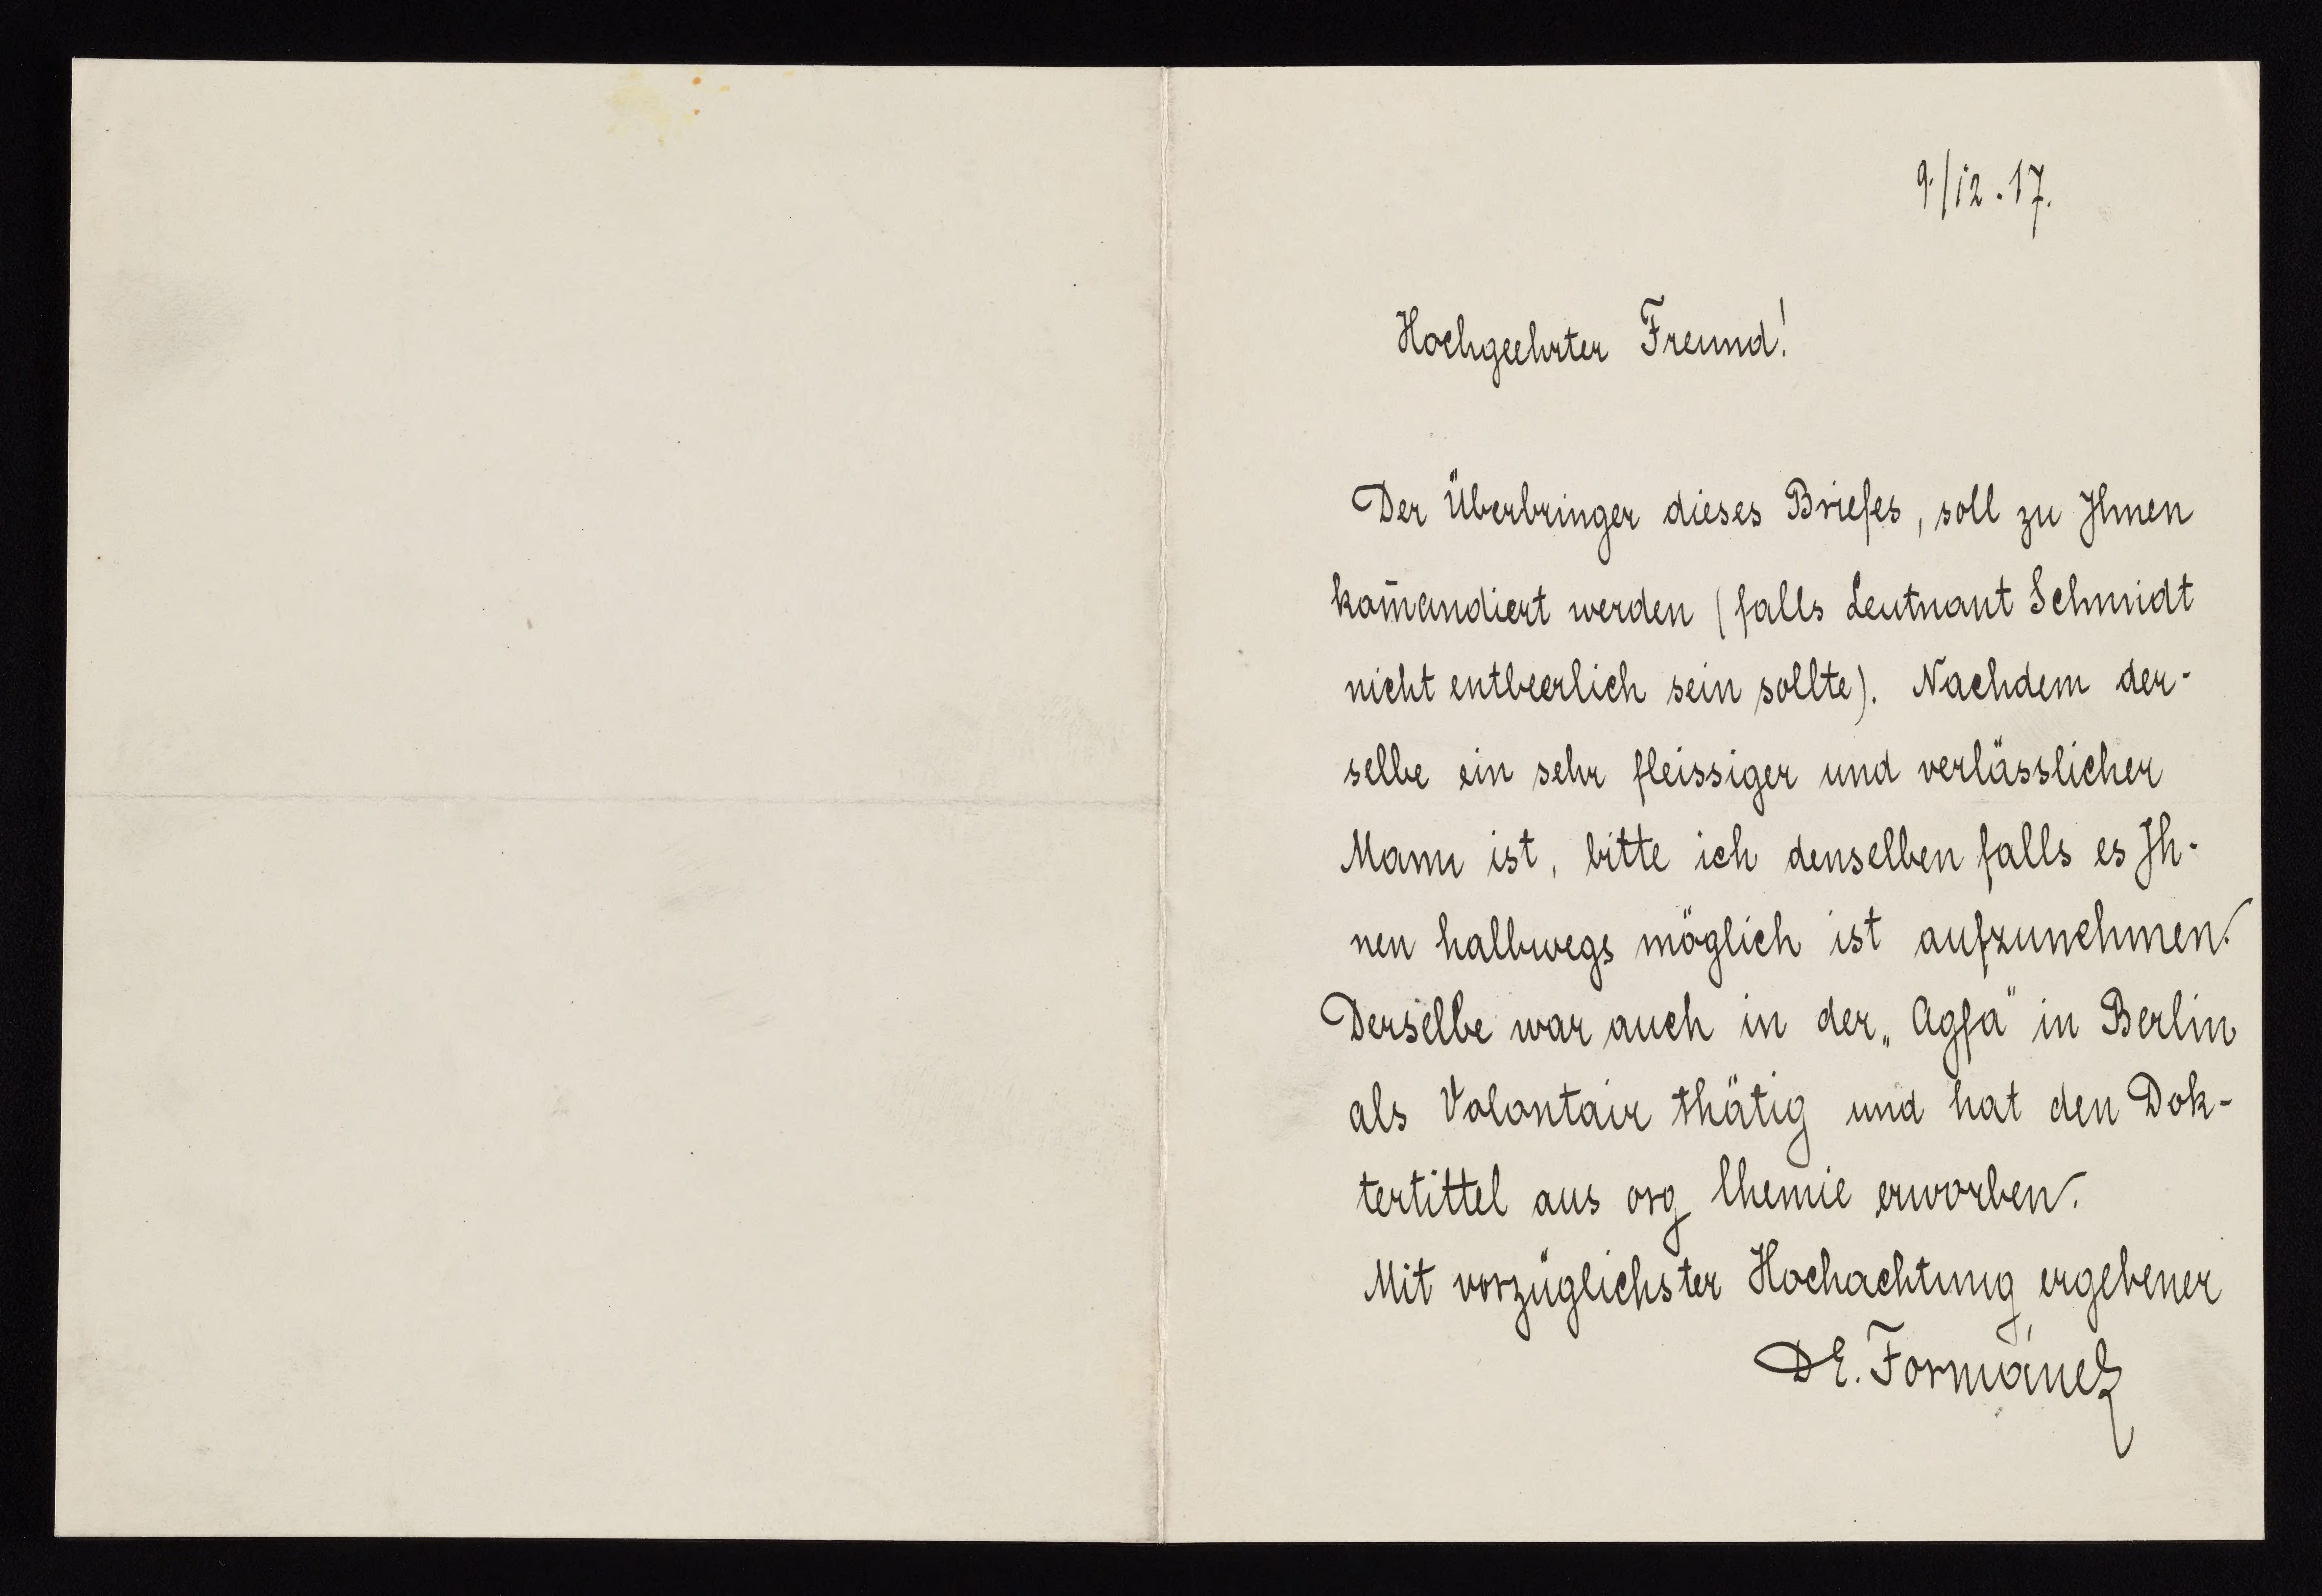 9./12.17.
Hochgeehrter Freund!
Der Überbringer dieses Briefes, soll zu Ihnen
kom̄andiert werden (falls Leutnant Schmidt
nicht entbeerlich sein sollte). Nachdem der-
selbe ein sehr fleissiger und verlässlicher
Mann ist, bitte ich denselben falls es Ih-
nen halbwegs möglich ist aufzunehmen.
Derselbe war auch in der „Agfa" in Berlin
als Volontair thätig und hat den Dok-
tertittel aus org Chemie erworben.
Mit vorzüglichster Hochachtung ergebener
DE. Formánek